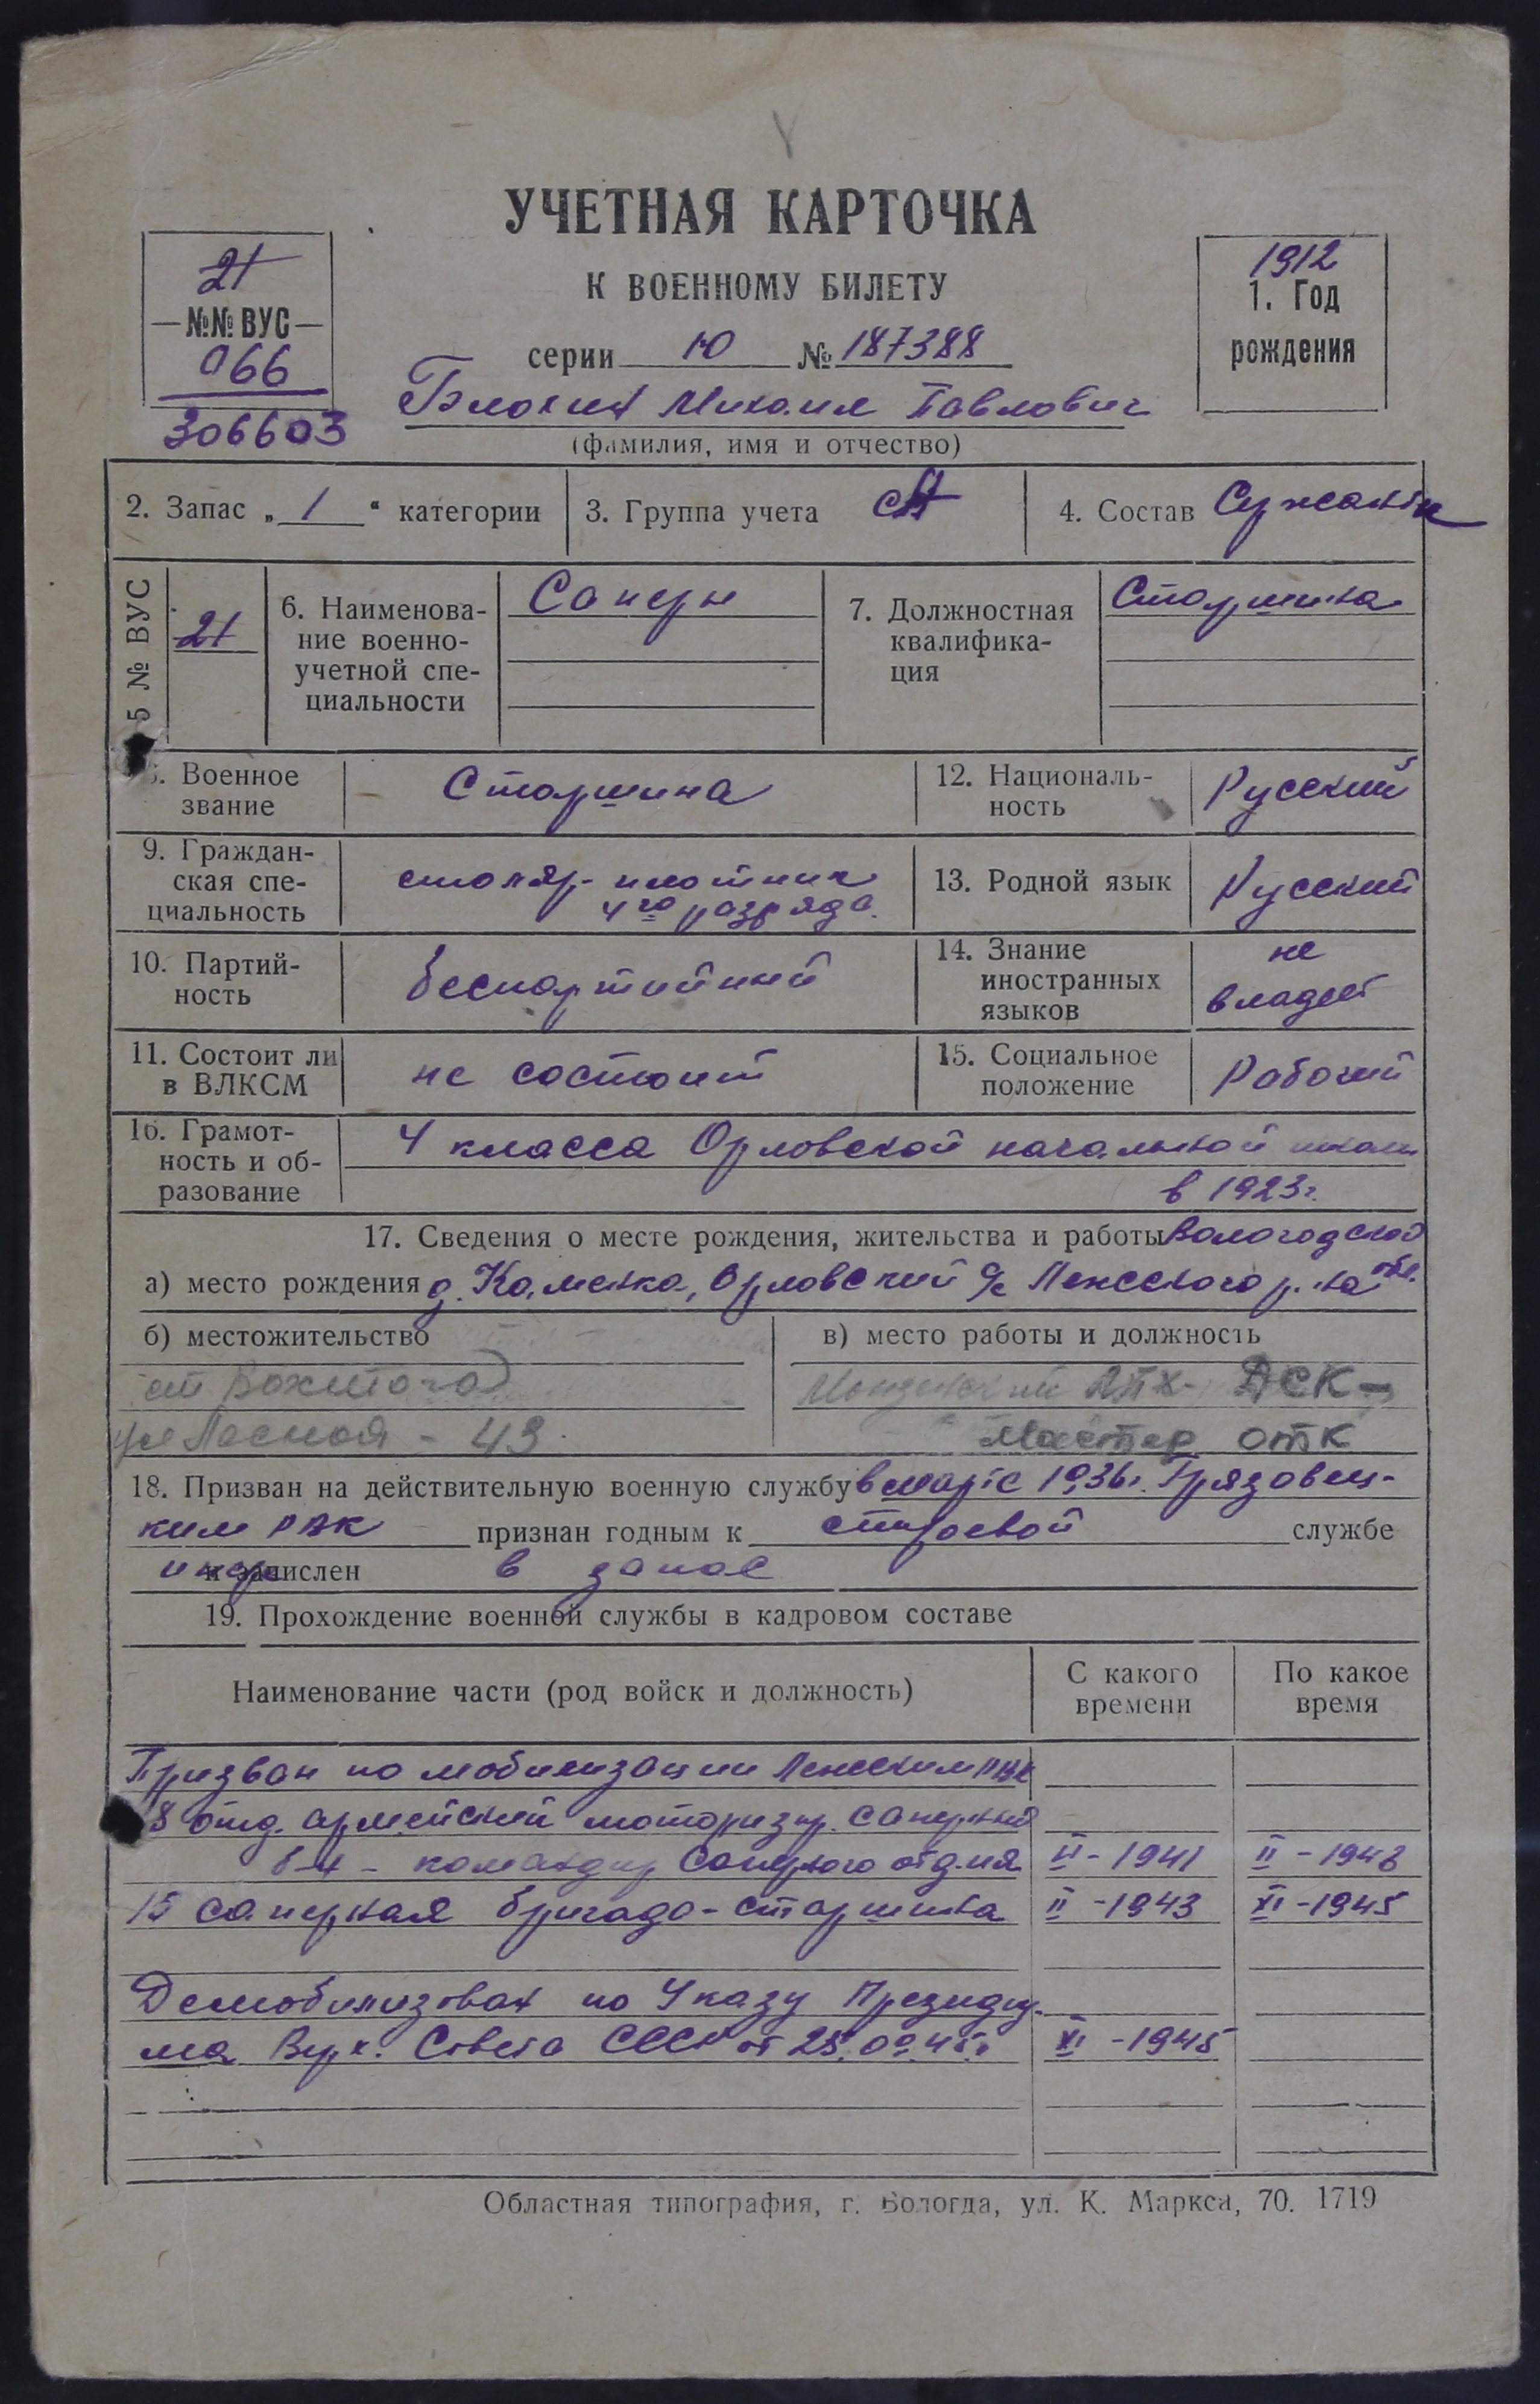 УЧЕТНАЯ КАРТОЧКА
К ВОЕННОМУ БИЛЕТУ
серии Ю № 187388
21
—№№ ВУС—
066
306603
1912
1. Год
рождения
Блохин Михаил Павлович
(фамилия, имя и отчество)
2. Запас „ 1 “ категории
3. Группа учета СА
4. Состав Сержантск
5 № ВУС
21
6. Наименова-
ние военно-
учетной спе-
циальности
Саперн
7. Должностная
квалифика-
ция
Старшина
8. Военное
звание
Старшина
12. Националь-
ность
Русский
9. Граждан-
ская спе-
циальность
столяр-плотник
4го разряда.
13. Родной язык
Русский
10. Партий-
ность
беспартийный
14. Знание
иностранных
языков
не
владеет
11. Состоит ли
в ВЛКСМ
не состоит
15. Социальное
положение
Рабочий
16. Грамот-
ность и об-
разование
4 класса Орловской начальной школы
в 1923г.
17. Сведения о месте рождения, жительства и работы Вологодской
а) место рождения д. Каменка, Орловский с/с Лежского р-на обл.
б) местожительство
ст Вохтога
ул Лесная - 43
в) место работы и должность
Монзенский ЛПХ- ДСК-
Мастер ОТК
18. Призван на действительную военную службу в марте 1936г. Грязовец-
ким РВК признан годным к строевой службе
и зачислен в запас
19. Прохождение военной службы в кадровом составе
Наименование части (род войск и должность)
С какого
времени
По какое
время
Призван по мобилизации Лежским РВК
8 отд. армейский моторизир. саперный
б-н - командир саперного отд-ия VI - 1941 II - 1943
15 саперная бригада - старшина II - 1943 XI - 1945
Демобилизован по Указу Президиу-
ма Верх. Совета СССР от 25.09.45г. XI - 1945
Областная типография, г. Вологда, ул. К. Маркса, 70. 1719